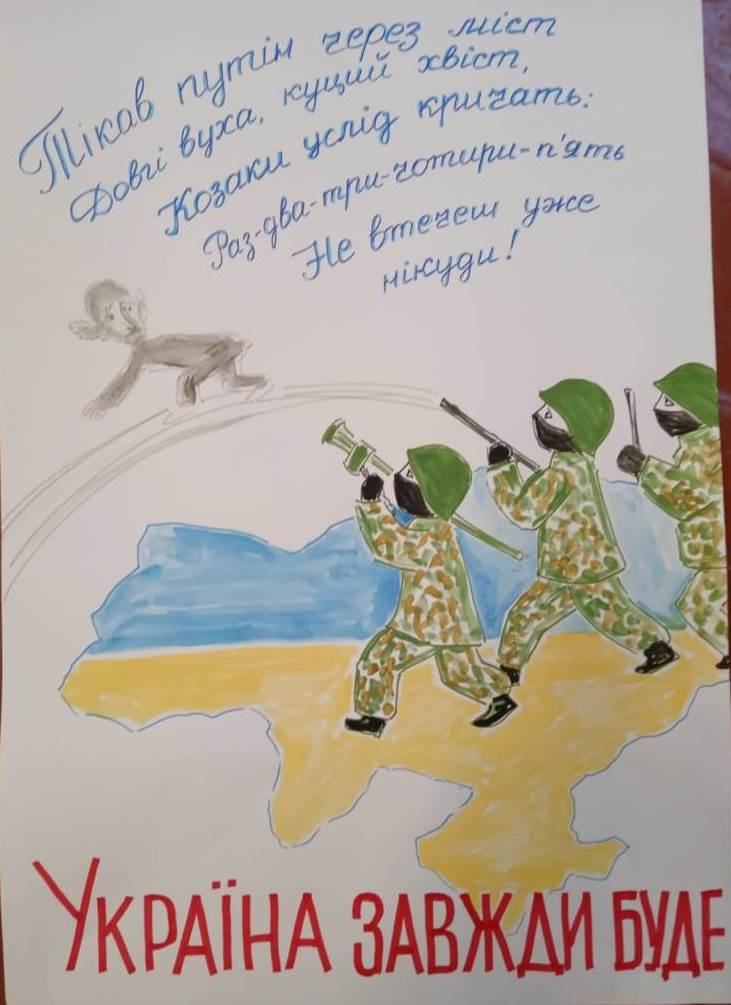 Тікав путін через міст
Довгі вуха, куций хвіст,
Козаки услід кричать:
Раз-два-три-чотири-п'ять
Не втечеш уже
нікуди!
УКРАЇНА ЗАВЖДИ БУДЕ